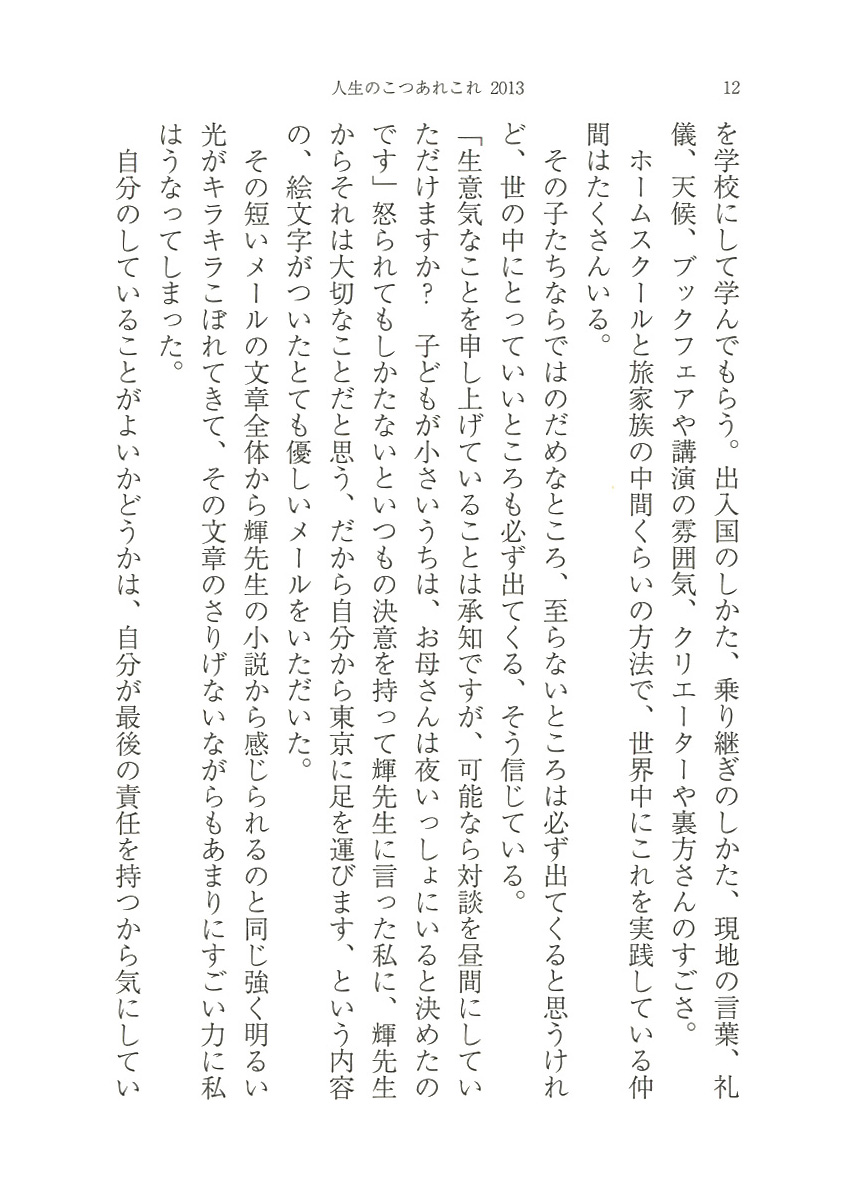 人生のこつあれこれ 2013
12
を学校にして学んでもらう。出入国のしかた、乗り継ぎのしかた、現地の言葉、礼
儀、天候、ブックフェアや講演の雰囲気、クリエーターや裏方さんのすごさ。
ホームスクールと旅家族の中間くらいの方法で、世界中にこれを実践している仲
間はたくさんいる。
その子たちならではのだめなところ、至らないところは必ず出てくると思うけれ
ど、世の中にとっていいところも必ず出てくる、そう信じている。
「生意気なことを申し上げていることは承知ですが、可能なら対談を昼間にしてい
ただけますか?　子どもが小さいうちは、お母さんは夜いっしょにいると決めたの
です」怒られてもしかたないといつもの決意を持って輝先生に言った私に、輝先生
からそれは大切なことだと思う、だから自分から東京に足を運びます、という内容
の、絵文字がついたとても優しいメールをいただいた。
その短いメールの文章全体から輝先生の小説から感じられるのと同じ強く明るい
光がキラキラこぼれてきて、その文章のさりげないながらもあまりにすごい力に私
はうなってしまった。
自分のしていることがよいかどうかは、自分が最後の責任を持つから気にしてい